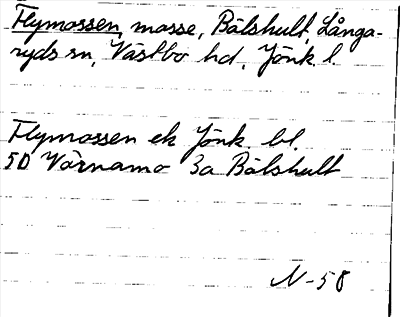 Flymossen, mosse, Bölshult, Långa-
ryds sn, Västbo hd, Jönk. l.
Flymossen ek Jönk. bl.
5D Värnamo 3a Bölshult
N-58